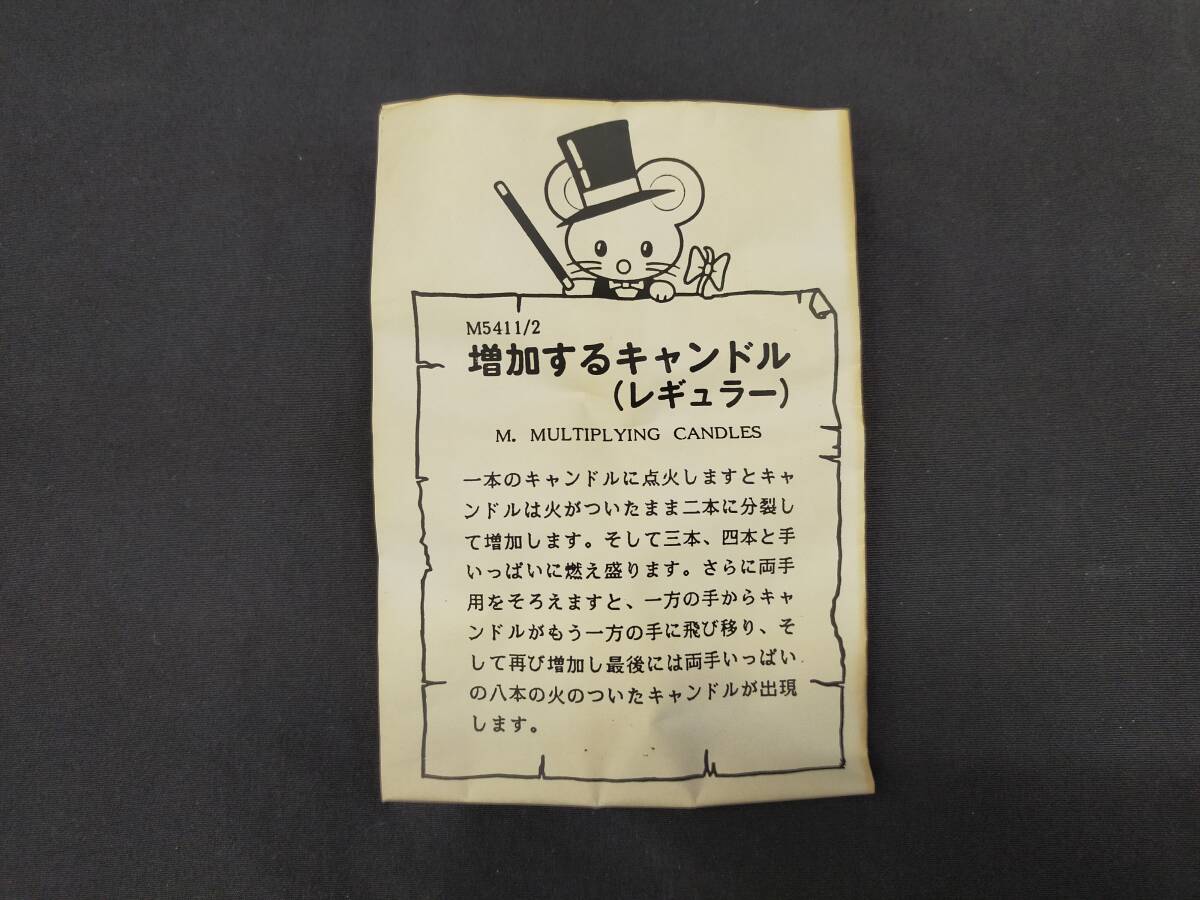 M5411/2
増加するキャンドル
(レギュラー)
M. MULTIPLYING CANDLES
一本のキャンドルに点火しますとキャ
ンドルは火がついたまま二本に分裂し
て増加します。そして三本、四本と手
いっぱいに燃え盛ります。さらに両手
用をそろえますと、一方の手からキャ
ンドルがもう一方の手に飛び移り、そ
して再び増加し最後には両手いっぱい
の八本の火のついたキャンドルが出現
します。